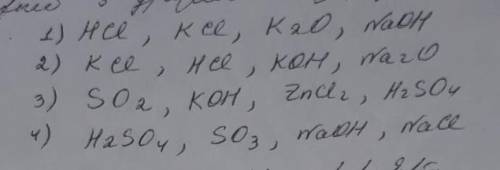 1) HCl, KCl, K2O, NaOH
2) KCl, HCl, KOH, Na2O
3) SO2, KOH, ZnCl2, H2SO4
4) H2SO4, SO3, NaOH, NaCl